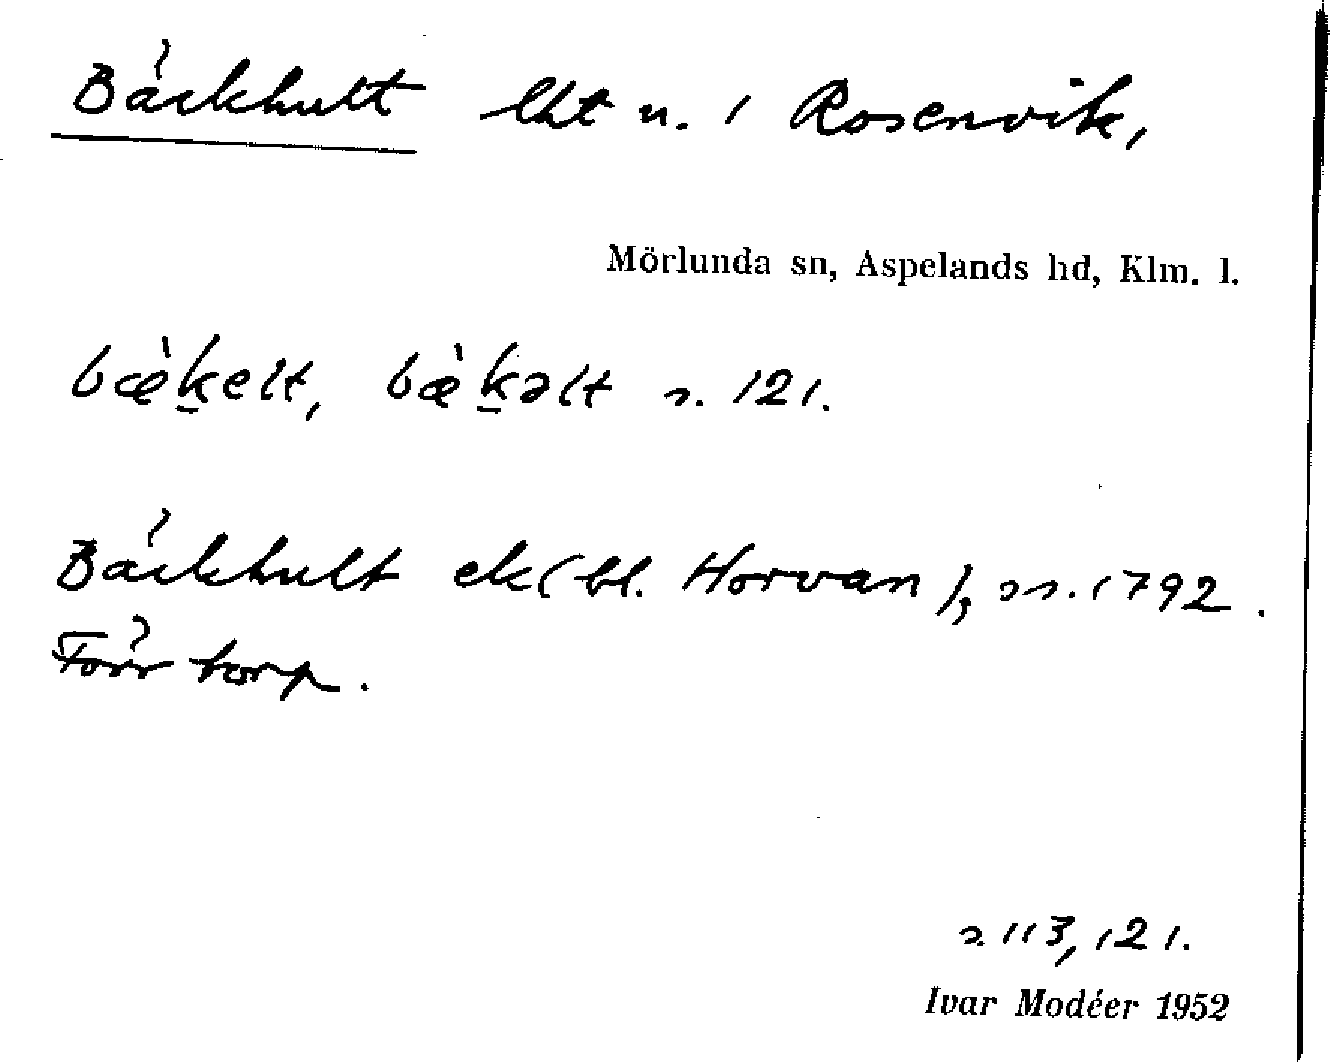 Bäckhult lht u. 1 Rosenvik,
Mörlunda sn, Aspelands hd, Klm. l.
bæ̀k̲elt, bæ̀k̲əlt s. 121.
Bäckhult ek (bl. Horvan), s. 1792.
Förr torp.
s. 113, 121.
Ivar Modéer 1952